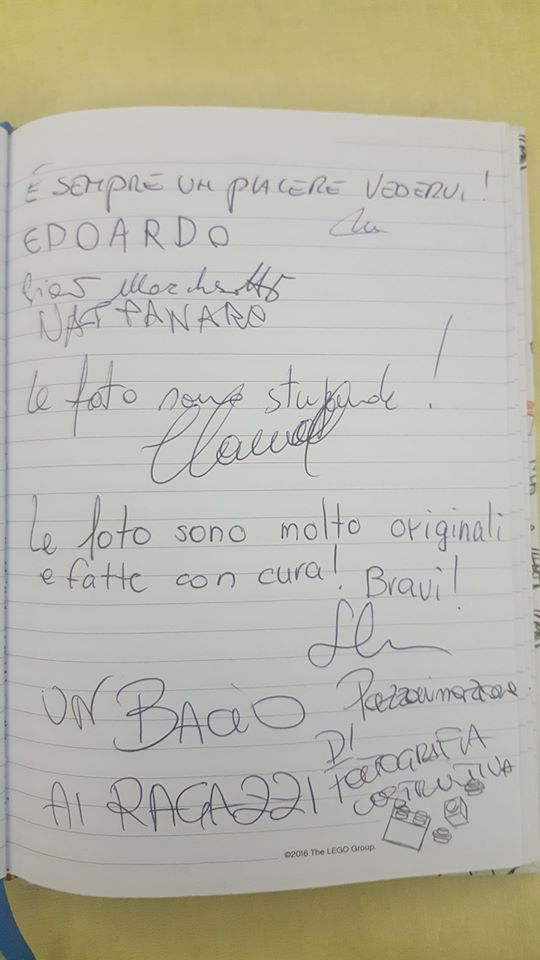 È SEMPRE UN PIACERE VEDERVI!
EDOARDO
NAT PANARO
le foto sono stupende!
le foto sono molto originali
e fatte con cura! Bravi!
UN BACIO
AI RAGAZZI
DI
FOTOGRAFIA
COSTRUTTIVA
©2016 The LEGO Group.